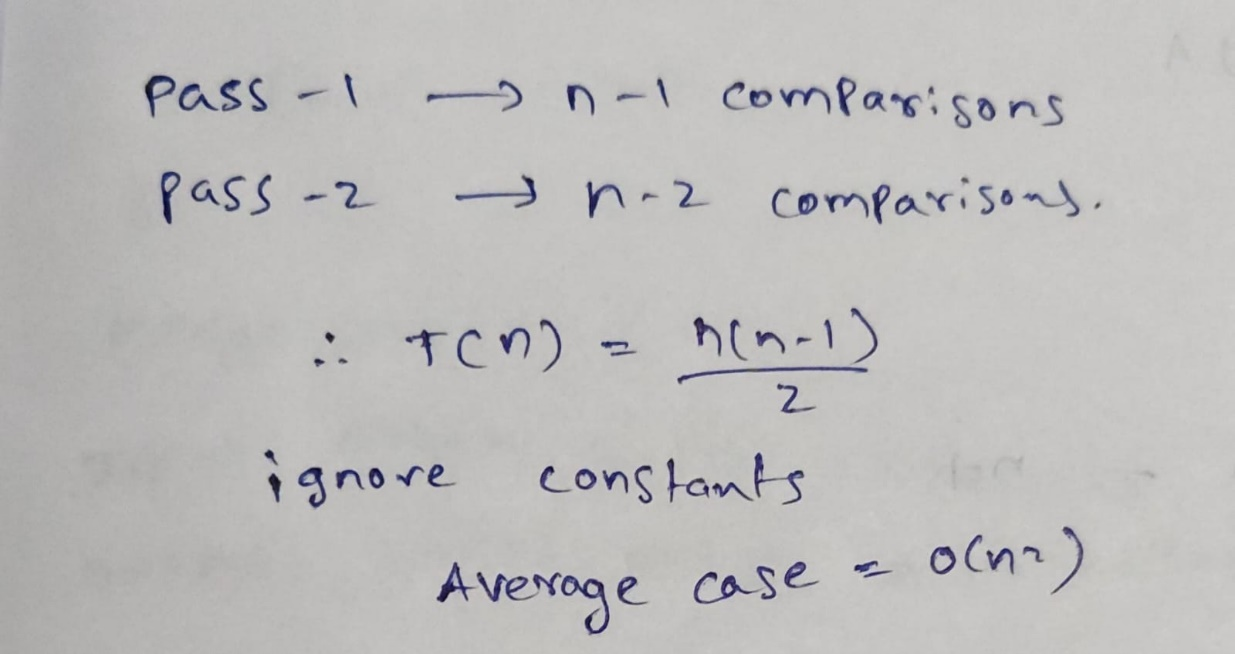 Pass -1 → n-1 comparisons
Pass -2 → n-2 comparisons.
∴ T(n) = n(n-1)/2
ignore constants
Average case = O(n²)